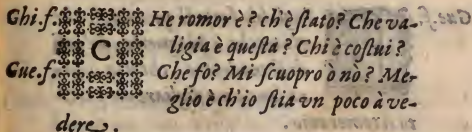 Ghi.f. CHe romor è? ch'è ſtato? Che va-
ligia è queſta? Chi è coſtui?
Gue.f. Che fo? Mi ſcuopro ò nò? Me-
glio è ch'io ſtia vn poco à ve-
dere.